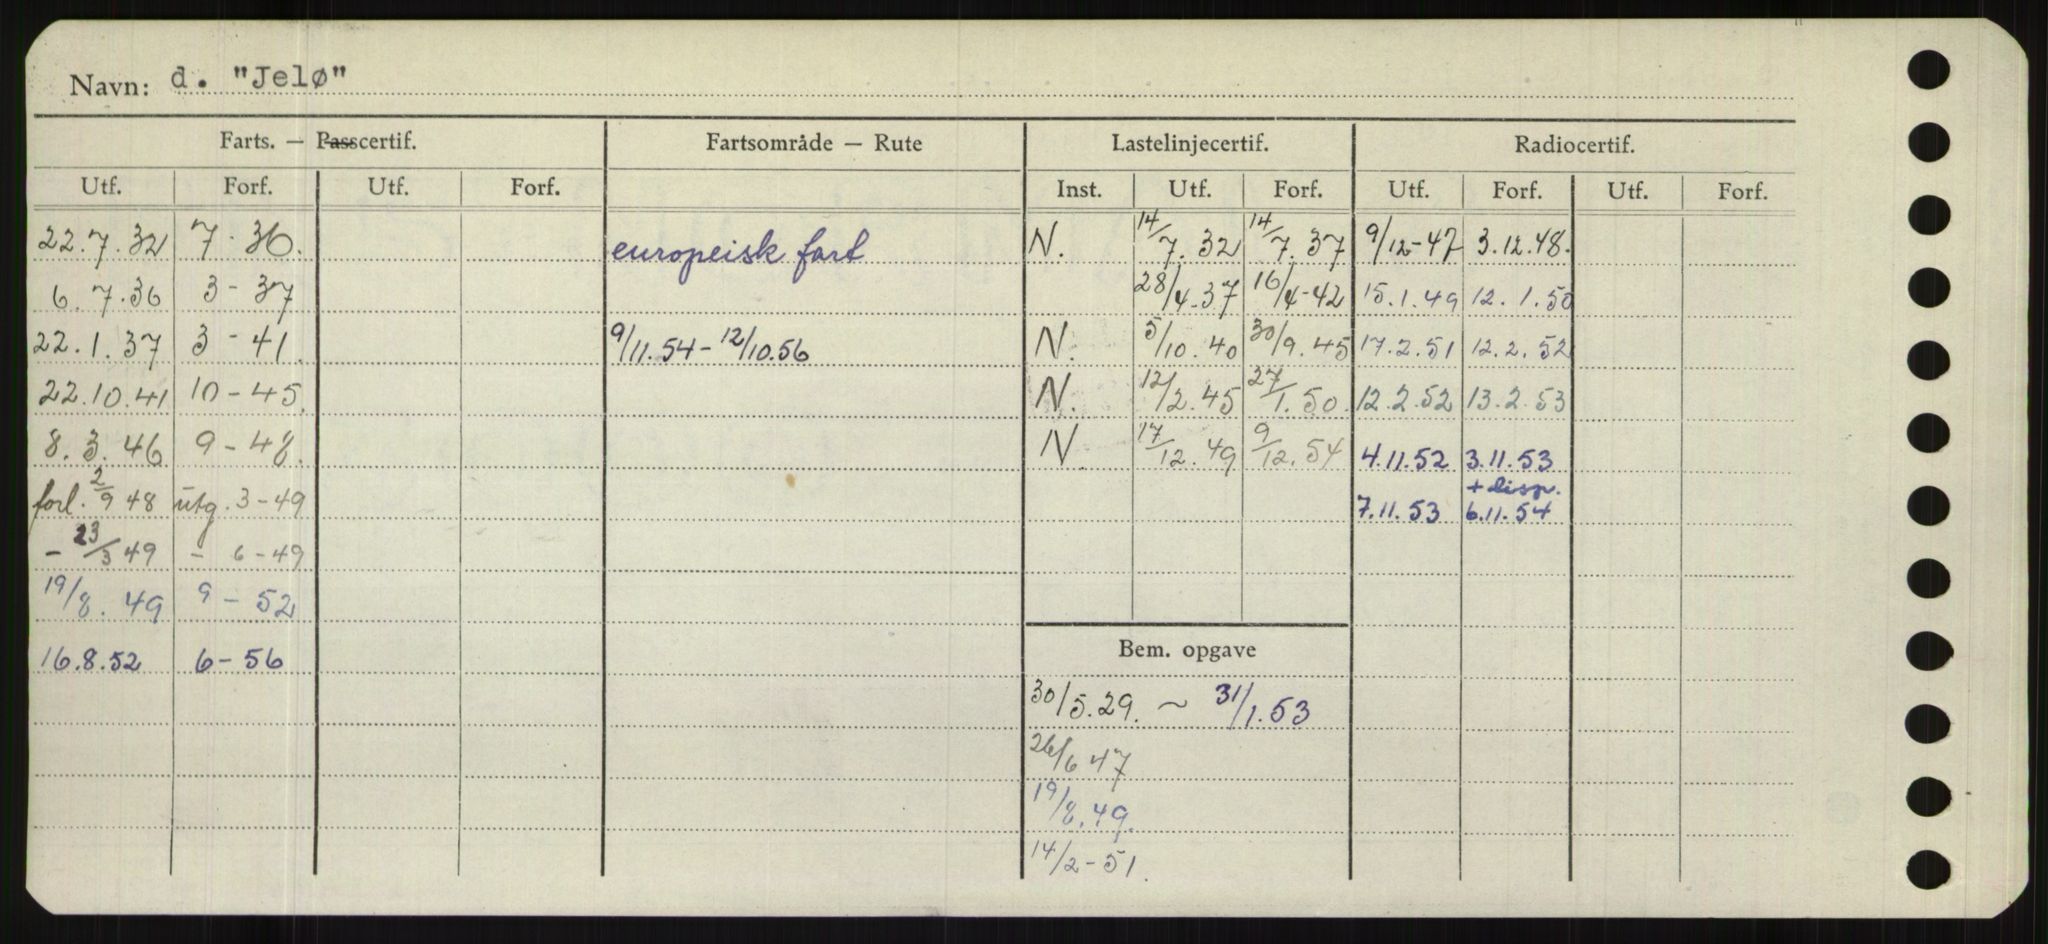 Navn: d. "Jelø"
Farts. — Passcertif. Fartsområde — Rute Lastelinjecertif. Radiocertif.
Utf. Forf. Utf. Forf. Inst. Utf. Forf. Utf. Forf. Utf. Forf.
22.7.32 7-36. europeisk fart N. 14/7.32 14/7.37 9/12-47 3.12.48.
6.7.36 3-37 28/4-37 16/4-42 15.1.49 12.1.50
22.1.37 3-41. 9/11.54 - 12/10.56 N. 5/10.40 30/9.45 17.2.51 12.2.52
22.10.41 10-45. N. 12/2.45 27/1.50. 12.2.52 13.2.53
8.3.46 9-48. N. 17/12.49 9/12.54 4.11.52 3.11.53
+ disp.
forl. 2/9 48 utg. 3-49 7.11.53 6.11.54
- 23/3 49 - 6-49
19/8.49 9-52
16.8.52 6-56
Bem. opgave
30/5.29. ~ 31/1.53
26/6 47
19/8.49.
14/2-51.